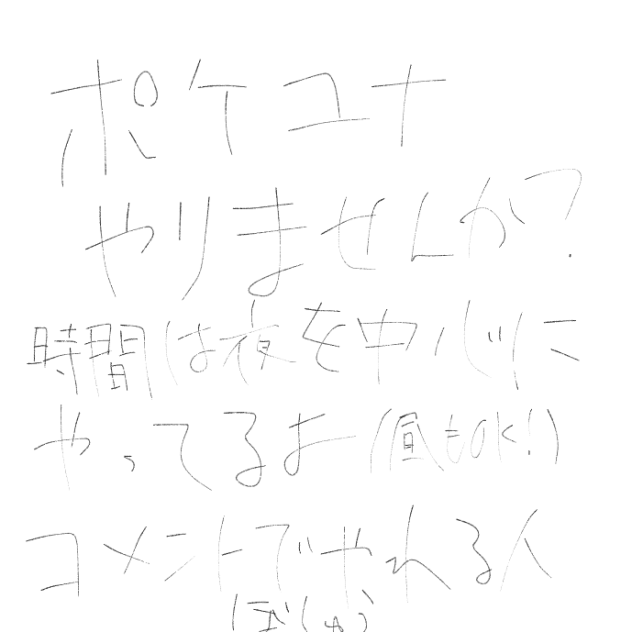 ポケユナ
やりませんか?
時間は夜を中心に
やってるよ(昼もOK!)
コメントでやれる人
ぼしゅう